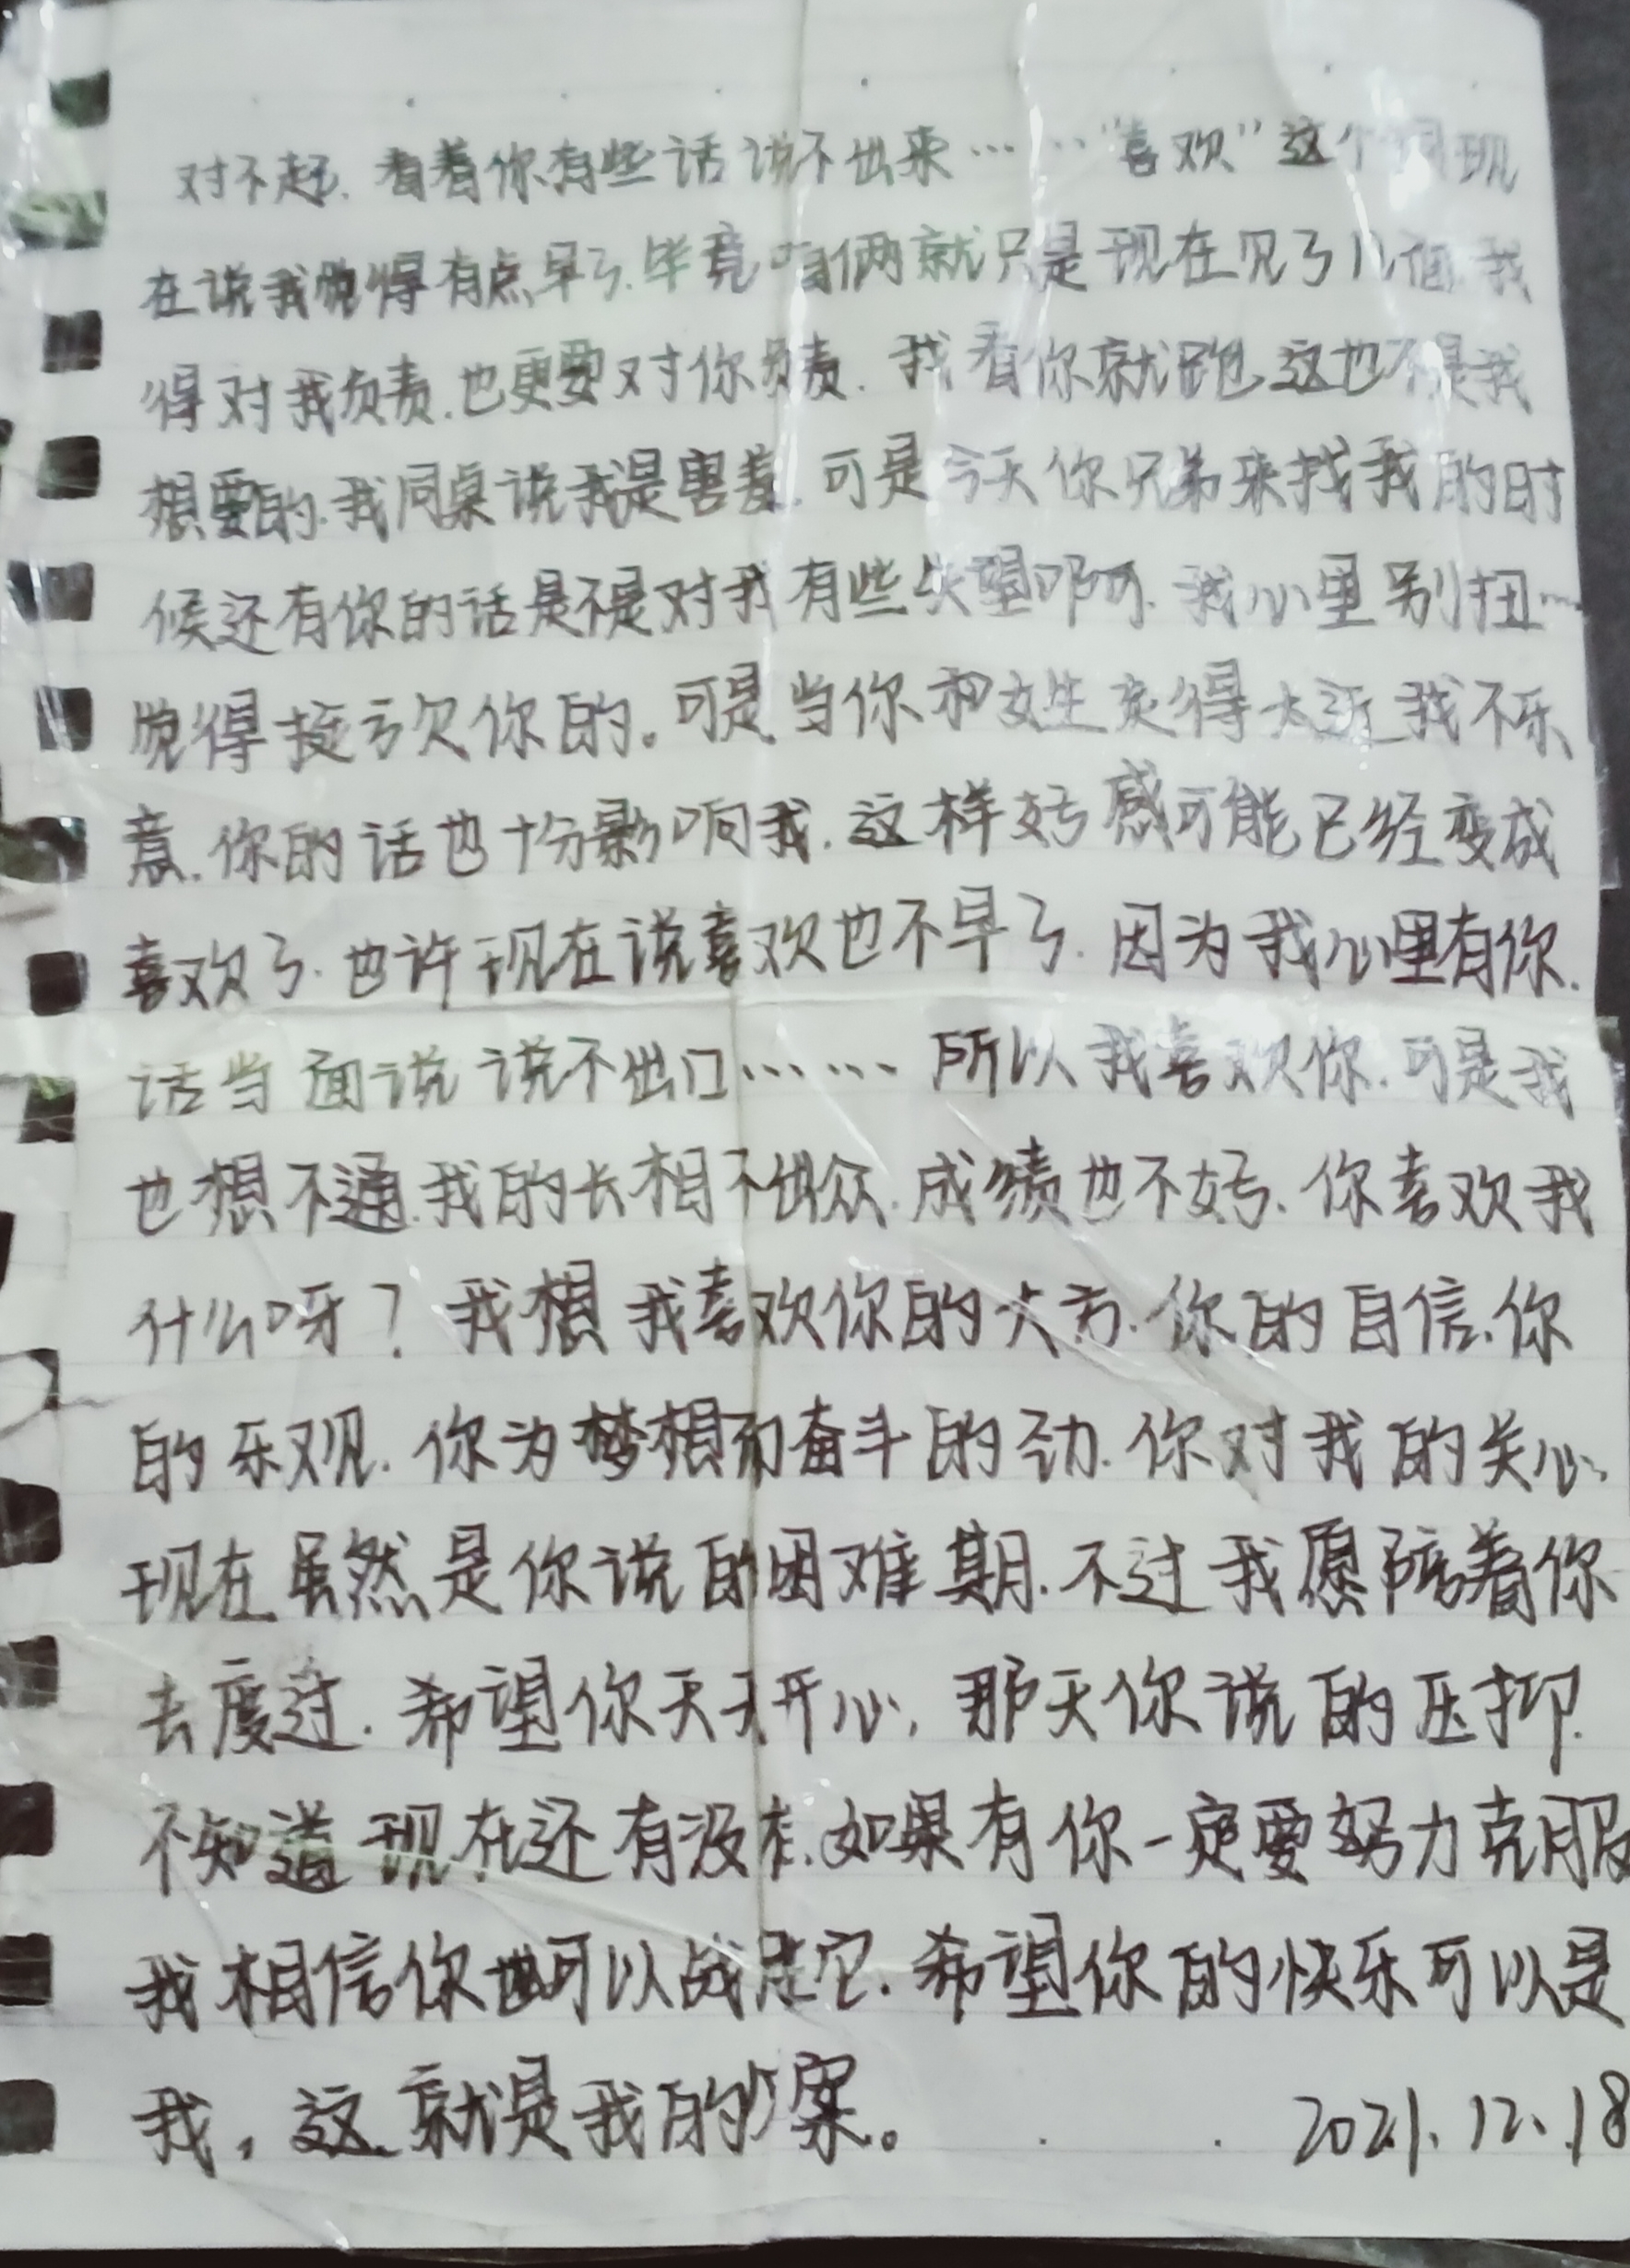 对不起.看着你有些话说不出来……"喜欢"这个词现
在说我觉得有点早了.毕竟咱俩就只是现在见了几面.我
得对我负责.也更要对你负责.我看你就跑这也不是我
想要的.我同桌说我是害羞.可是今天你兄弟来找我的时
候还有你的话是不是对我有些失望啊.我心里别扭…
觉得挺亏欠你的。可是当你和女生交得太近我不乐
意.你的话也十分影响我.这样好感可能已经变成
喜欢了.也许现在说喜欢也不早了.因为我心里有你.
话当面说说不出口……所以我喜欢你.可是我
也想不通.我的长相不出众.成绩也不好.你喜欢我
什么呀?我想我喜欢你的大方.你的自信.你
的乐观.你为梦想而奋斗的劲.你对我的关心.
现在虽然是你说的困难期.不过我愿陪着你
去度过.希望你天天开心,那天你说的压抑.
不知道现在还有没有.如果有你一定要努力克服
我相信你也可以战胜它.希望你的快乐可以是
我,这就是我的答案。 2021.12.18